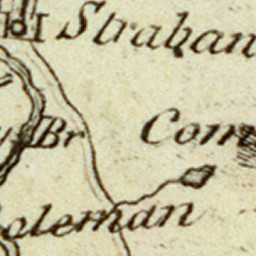 Straban
Br Com
oleman